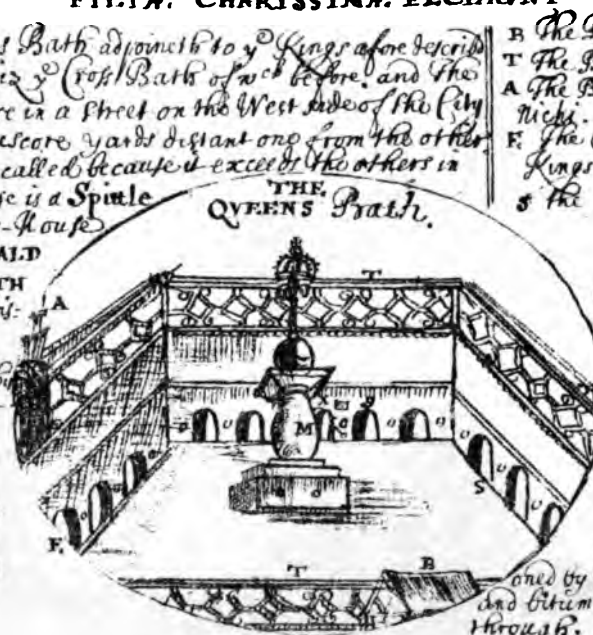 FILIA. CHARISSIMA.
s Bath adjoineth to yᵉ Kings afore describ
iz yᵉ Cross Bath of wᶜʰ before. and the
re in a street on the West side of the City
escore yards distant one from the other
called because it exceeds the others in
is a Spittle
-House
ALD
TH
B The
T The
A The
Nichi.
F. The
Kings
S the
THE
QVEENS Bath.
T
A
M
S
F.
T
B
oned by
and bitum
through.